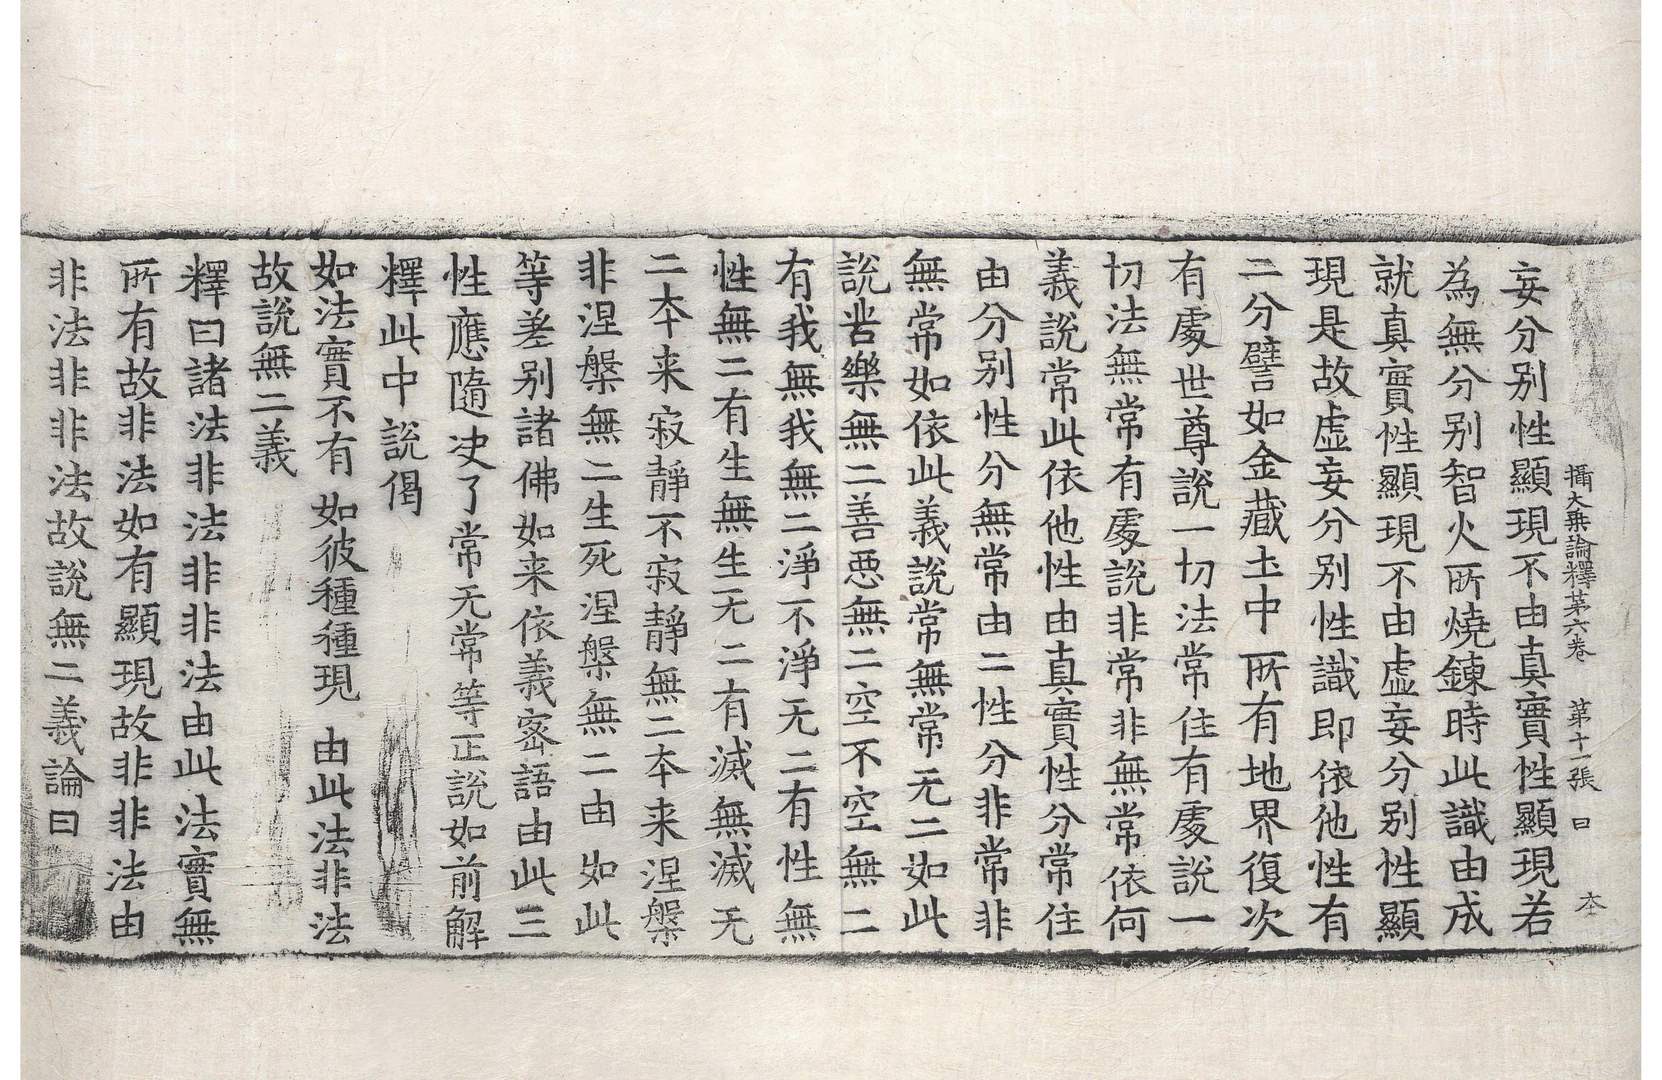 攝大乗論釋第六卷 第十一張 曰 夲
妄分别性顯現不由真實性顯現若
為無分别智火所燒鍊時此識由成
就真實性顯現不由虛妄分别性顯
現是故虛妄分别性識即依他性有
二分譬如金藏圡中所有地界復次
有處世尊說一切法常住有處說一
切法無常有處說非常非無常依何
義說常此依他性由真實性分常住
由分别性分無常由二性分非常非
無常如依此義說常無常无二如此
說苦樂無二善惡無二空不空無二
有我無我無二淨不淨无二有性無
性無二有生無生无二有滅無滅无
二夲来寂靜不寂靜無二夲来涅槃
非涅槃無二生死涅槃無二由如此
等差别諸佛如来依義密語由此三
性應隨决了常无常等正說如前解
釋此中說偈
如法實不有 如彼種種現 由此法非法
故說無二義
釋曰諸法非法非非法由此法實無
所有故非法如有顯現故非非法由
非法非非法故說無二義論曰